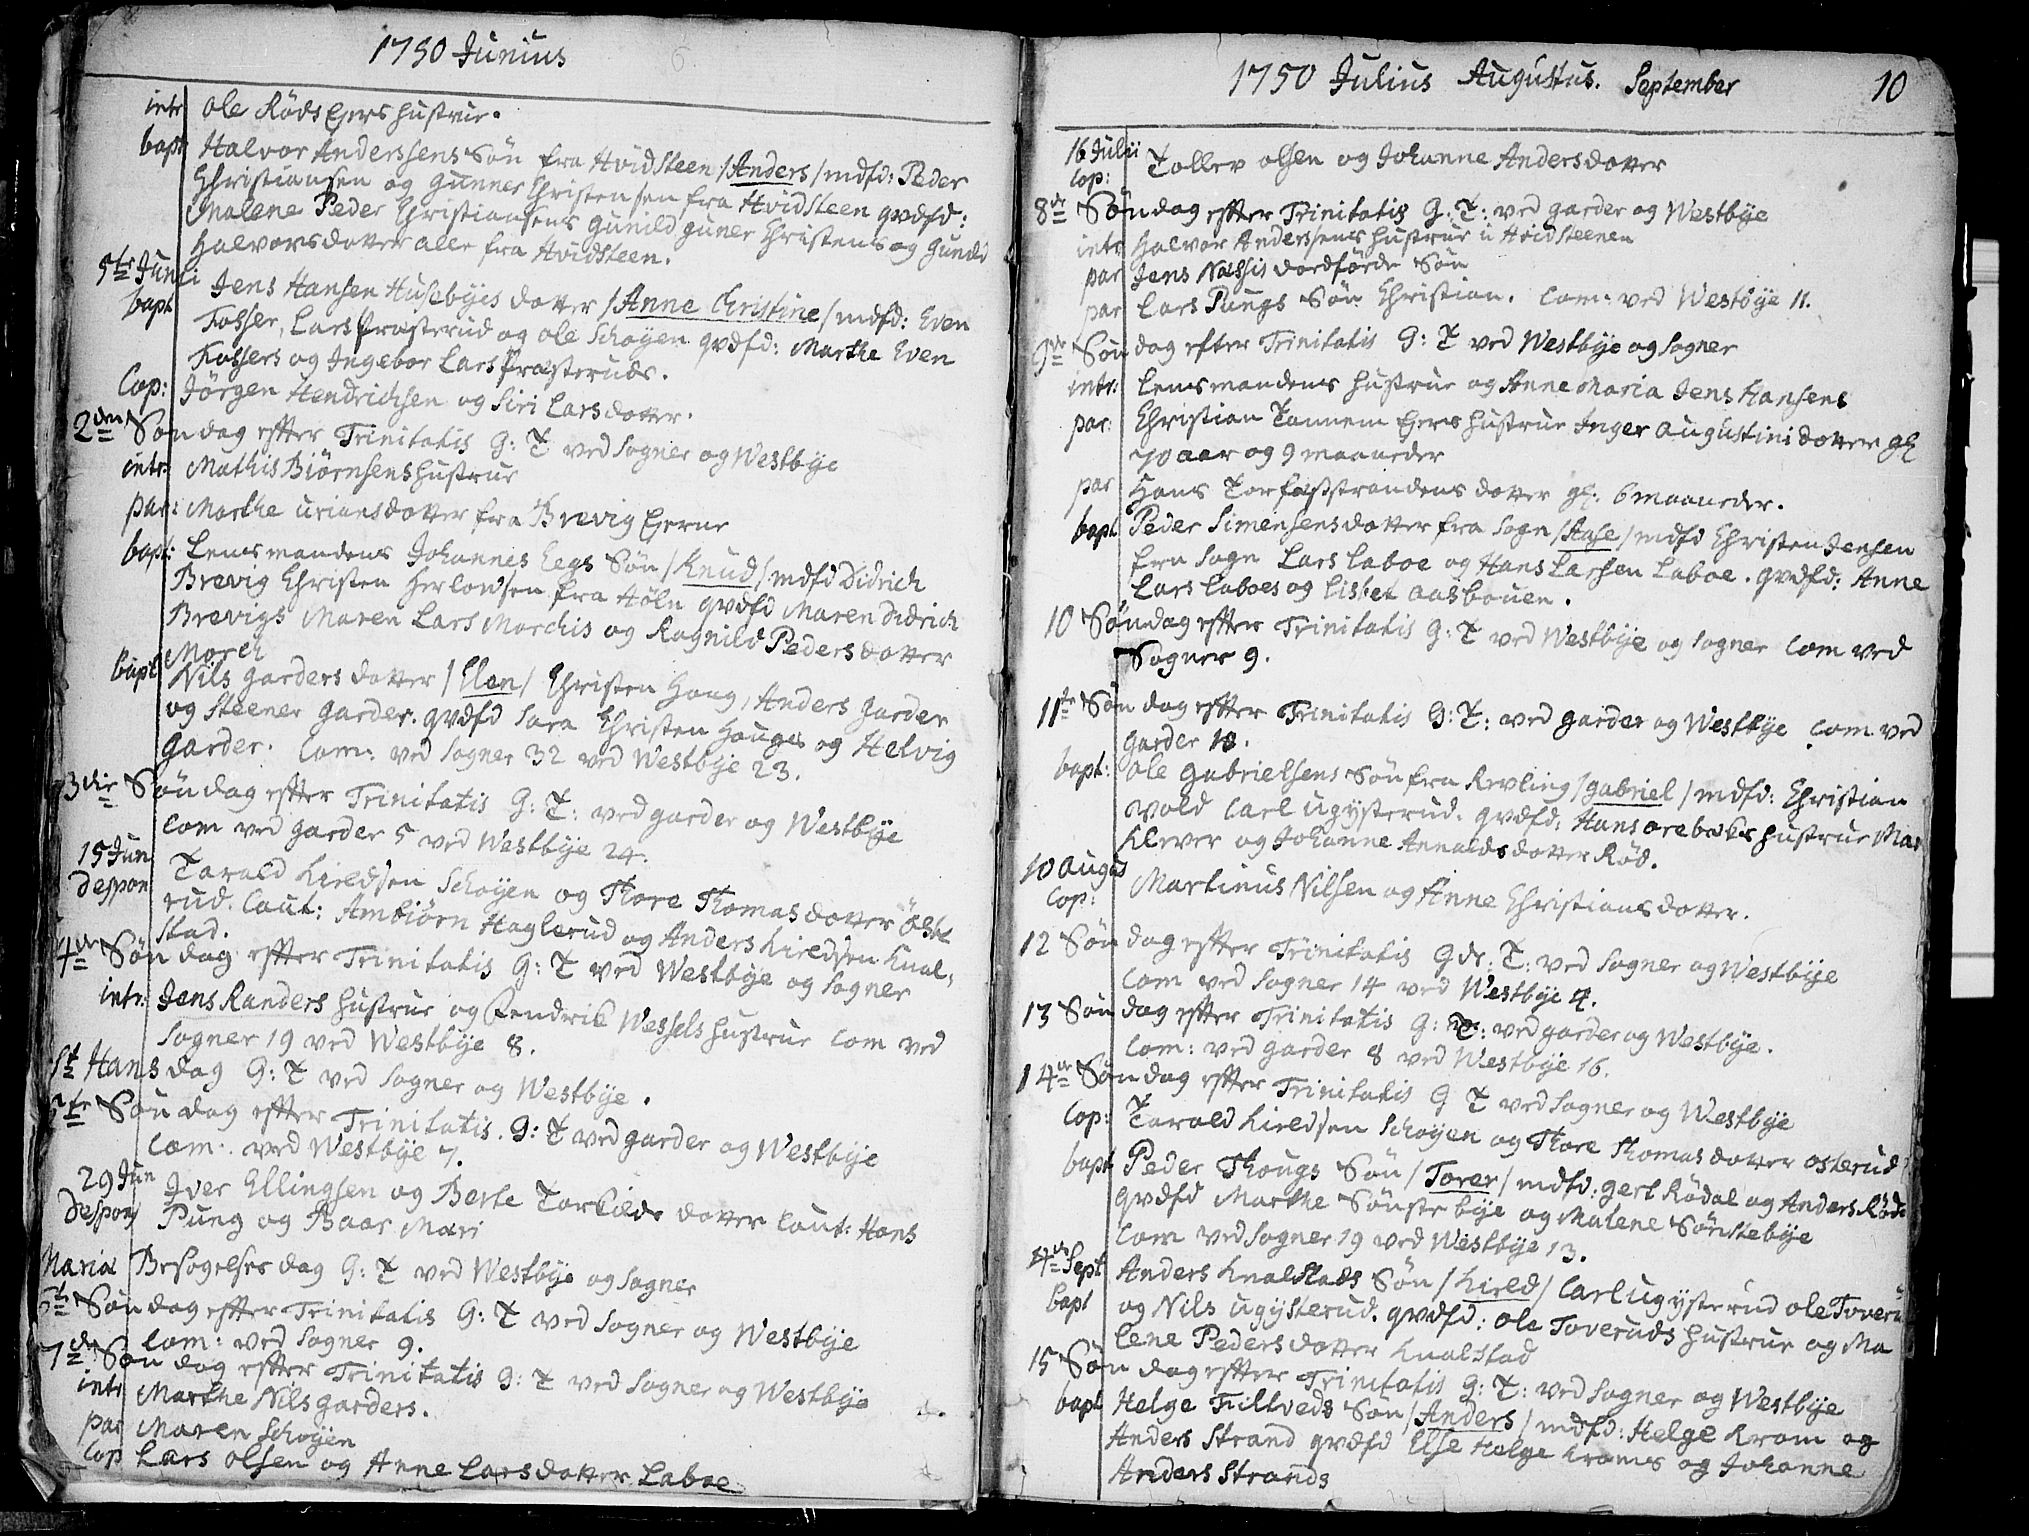 1750 Junius
intr Ole Røds Ejers hustrue.
bapt Halvor Anderssens Søn fra Hvidsteen /Anders/ mdfd: Peder
Christiansen og Gunner Christensen fra Hvidsteen qvdfd:
Malene Peder Christiansens Gunild guner Christens og Gunild
Halvorsdotter alle fra Hvidsteen.
5te Junii
bapt Jens Hansen Husebyes dotter /Anne Christine/ mdfd: Even
Fosser, Lars Præsterud og Ole Schøyen qvdfd: Marthe Even
Fossers og Ingebor Lars Præsteruds.
Cop: Jørgen Hendrichsen og Siri Larsdotter.
2den Søndag effter Trinitatis G: T ved Sogner og Westbye
intr: Mathis Biørnsens hustrue
par: Marthe uriansdotter fra Brevig Ejerne
bapt: Lensmandens Johannes Eegs Søn /Knud/ mdfd Didrich
Brevig Christen Herlovsen fra Høln qvdfd Maren Didrich
Brevigs Maren Lars Morchis og Ragnild Pedersdotter
Morch
bapt Nils Garders dotter /Elen/ Christen Haug, Anders Garder
og Steener Garder. qvdfd Sara Christen Hauges og Helvig
Garder. Com: ved Sogner 32 ved Westbye 23.
3die Søndag effter Trinitatis G: T: ved garder og Westbye
Com ved garder 5 ved Westbye 24.
15 Jun
Despon Tarald Kieldsen Schøyen og Thore Thomasdotter Oste
rud. Caut: Ambiørn Haglerud og Anders Kieldsen Knal-
stad.
4de Søndag effter Trinitatis G: T ved Westbye og Sogner
intr: Jens Randers hustrue og Hendrik Wessels hustrue Com ved
Sogner 19 ved Westbye 8.
St Hans dag G: T ved Sogner og Westbye.
5te Søndag effter Trinitatis. G: T ved garder og Westbye
Com: ved Westbye 7.
29 Jun
Despon Iver Ellingsen og Berte Torkilds dotter Caut: Hans
Pung og Baar Mari
Mariæ Besøgelses dag G: T ved Westbye og Sogner
6te Søndag effter Trinitatis G: T ved Sogner og Westbye
Com: ved Sogner 9.
7de Søndag effter Trinitatis G: T ved Sogner og Westbye
intr Marthe Nils garders.
par Maren Schøyen
Cop Lars Olsen og Anne Larsdotter Laboe
1750 Julius Augustus. September 10
16 Julii
Cop: Tollev Olsen og Johanne Andersdotter
8de Søndag effter Trinitatis G: T: ved garder og Westbye
intr Halvor Anderssens hustrue i Hvidsteenen
par Jens Næssis dødfødde Søn
par Lars Pungs Søn Christian. Com: ved Westbye 11.
9de Søndag efter Trinitatis G: T ved Westbye og Sogner
intr: Lensmandens hustrue og Anne Maria Jens Hansens
par: Christian Tannem Ejers hustrue Inger Augustini dotter gl
70 aar og 9 maaneder
par Hans Torfæsstrandens dotter gl: 6 maaneder.
bapt Peder Simensens dotter fra Sogn /Aase/ mdfd Christen Jensen
fra Sogn Lars Laboe og Hans Larsen Laboe. qvdfd: Anne
Lars Laboes og Lisbet Aasbouen.
10 Søndag effter Trinitatis G: T ved Westbye og Sogner Com ved
Sogner 9.
11te Søndag effter Trinitatis G: T: ved garder og Westbye Com ved
Garder 10.
bapt: Ole Gabrielsens Søn fra Revling /Gabriel/ mdfd: Christian
Wold Carl Ugysterud. qvdfd: Hans Orebæks hustrue Mar
Klever og Johanne Annædsdotter Rød.
10 Augus
Cop: Martinus Nilsen og Anne Christiansdotter.
12 Søndag effter Trinitatis Gds: T: ved Sogner og Westbye
Com ved Sogner 14 ved Westbye 4.
13 Søndag effter Trinitatis G: T: ved garder og Westbye.
Com: ved garder 8 ved Westbye 16.
14de Søndag effter Trinitatis G T ved Sogner og Westbye
Cop: Tarald Kieldsen Schøyen og Thore Thomasdotter Osterud
bapt Peder Thougs Søn /Torer/ mdfd: gert Rødal og Anders Røds
qvdfd Marthe Sønstebye og Malene Sønstebye
Com ved Sogner 19 ved Westbye 13.
4de Sept
bapt Anders Knalstads Søn /Kield/ Carl Ugysterud Ole Toveru
og Nils Ugysterud. qvdfd: Ole Toveruds hustrue og Ma
lene Pedersdotter Knalstad
15 Søndag effter Trinitatis G: T: ved Sogner og Westbye
bapt Helge Filtveds Søn /Anders/ mdfd: Helge Kram og
Anders Strand qvdfd Else Helge Krams og Johanne
Anders Strands